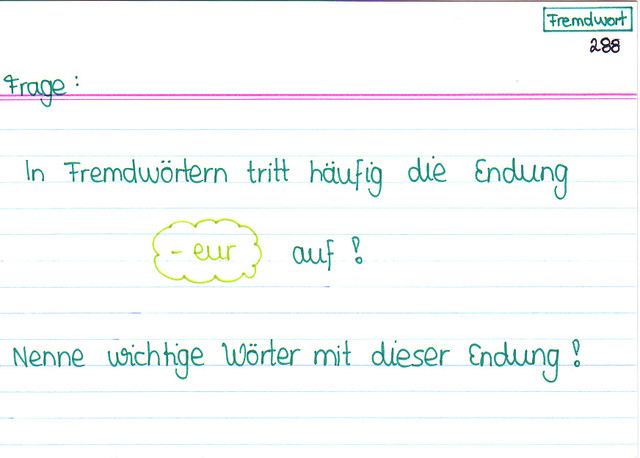 Fremdwort
288
Frage:
In Fremdwörtern tritt häufig die Endung
-eur auf!
Nenne wichtige Wörter mit dieser Endung!